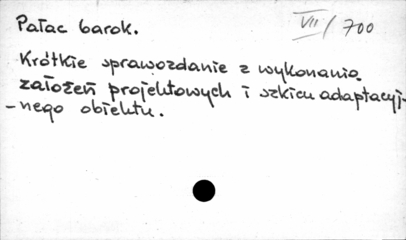 Pałac barok.
VII/700
Krótkie sprawozdanie z wykonania
założeń projektowych i szkicu adaptacyj-
-nego obiektu.